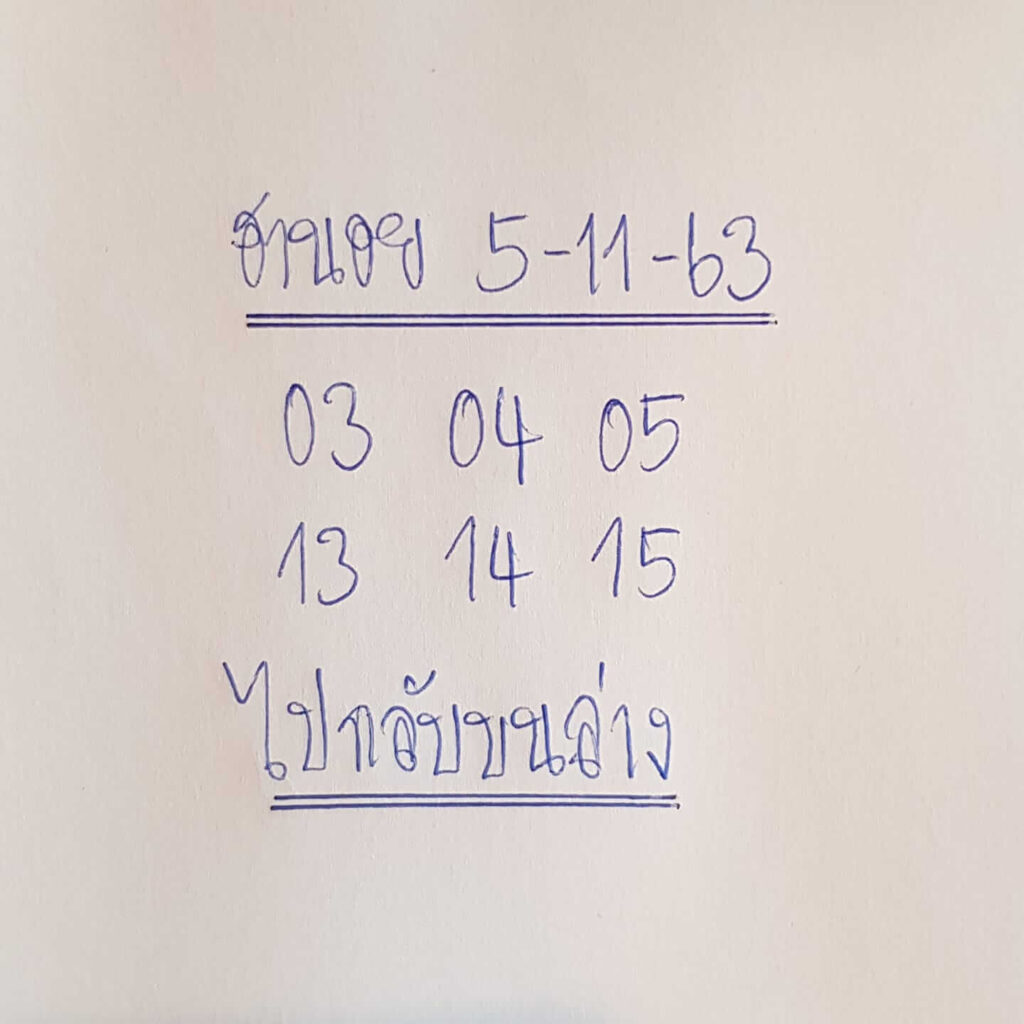 ฮานอย 5-11-63
03 04 05
13 14 15
ไปกลับบนล่าง